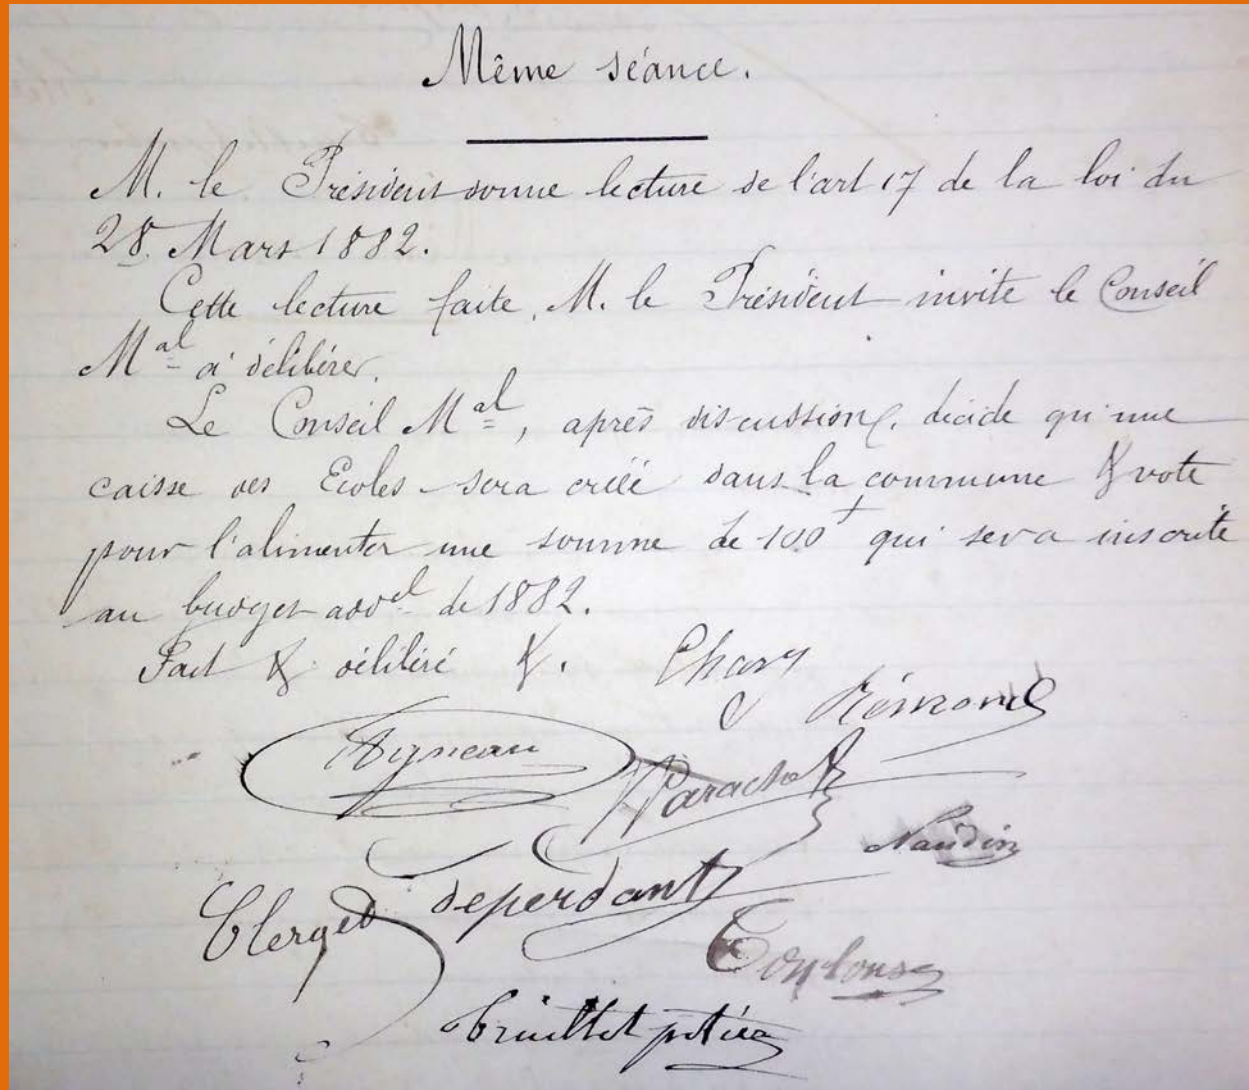 Même séance.
M. le Président donne lecture de l'art 17 de la loi du
28 Mars 1882.
Cette lecture faite, M. le Président invite le Conseil
Mal à délibérer.
Le Conseil Mal, après discussion, décide qu'une
caisse des Ecoles sera créée dans la commune & vote
pour l'alimenter une somme de 100f qui sera inscrite
au budget addel de 1882.
Fait & délibéré &.
Chary
Rémond
Vigneau
Parachot
Naudin
Clerget
deperdant
Toulouse